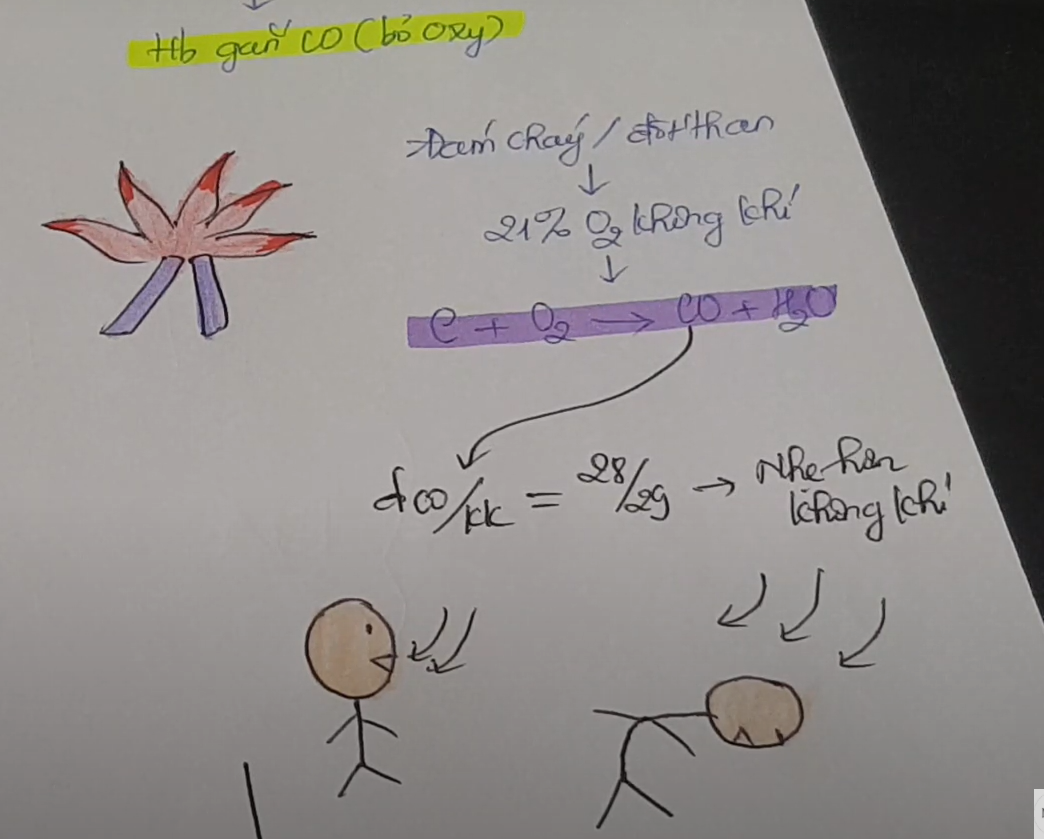 Hb gắn CO (bỏ oxy)
Đám cháy / đốt than
↓
21% O₂ không khí
↓
C + O₂ → CO + H₂O
dCO/kk = 28/29 → Nhẹ hơn
không khí